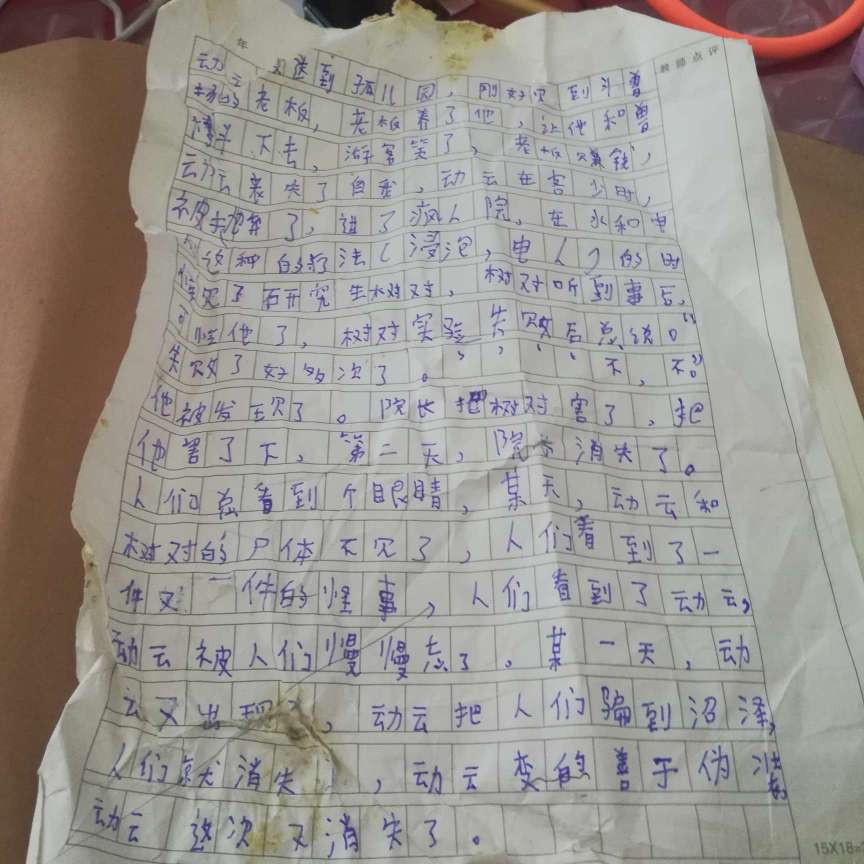 年
教师点评
动云 送到孤儿园，刚好 到斗兽
场的老板，老板养了他，让他和兽
下去，游客笑了，老板赚钱，
动云丧失了自我，动云在害 时，
被 了，进了疯人院，在水和电
这种的 法（浸泡，电人）的时
研究生树对，树对听到事后，
可怜他了，树对实验失败后总统。"
失败了好多次了。 不，不。"
他被发 了。院长把树对害了，把
他害了下，第二天，院 消失了。
人们总看到个眼睛，某天，动云和
树对的尸体不见了，人们看到了一
件又一件的怪事，人们看到了动云，
动云被人们慢慢忘了。某一天，动
云又出现 ，动云把人们骗到沼泽，
人们就消失 ，动云变的善于伪装
动云 这次又消失了。
15X18=